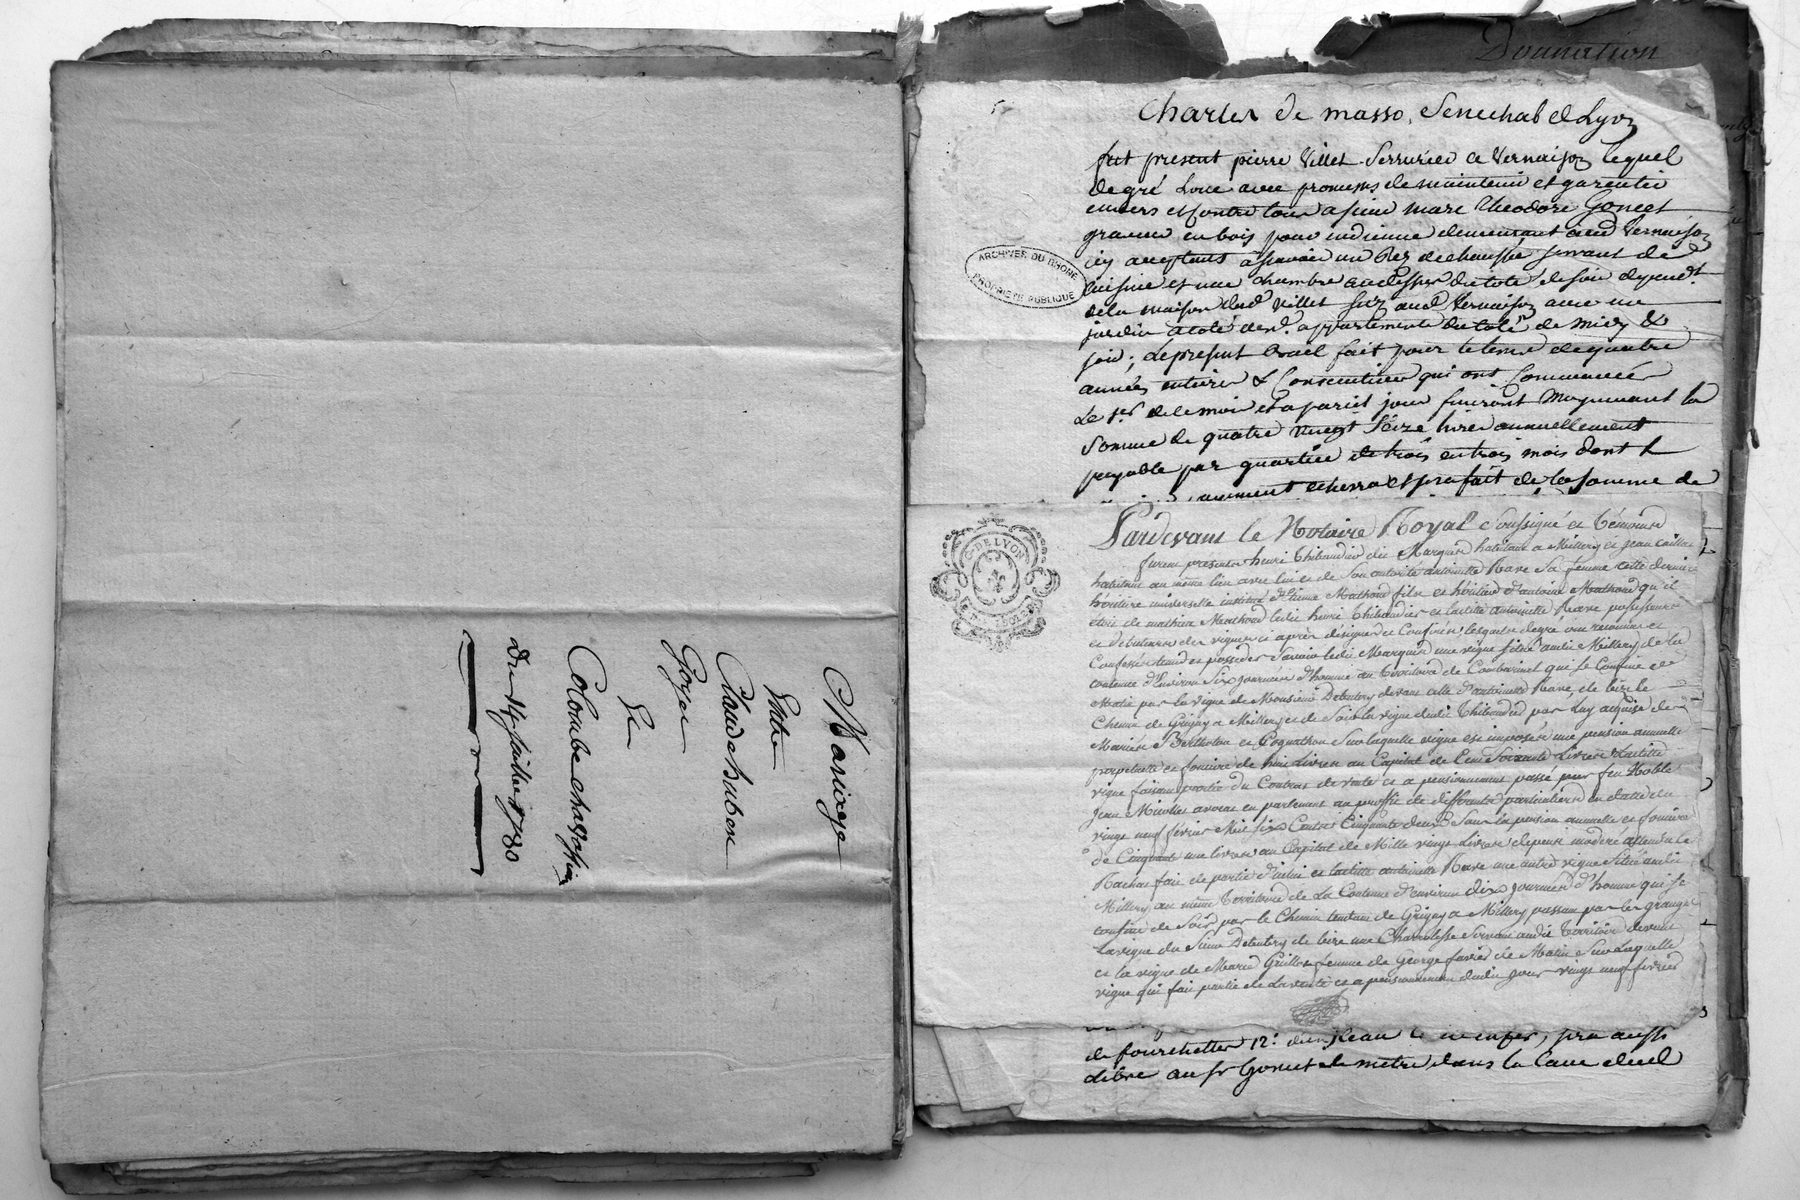 Mariage
Entre
Claude hubert
Goyer
Et
Colombe chassassin
Du 14 juillet 1780
Donnation
5
Charles de masso, Senechal de Lyon
fut present pierre Villet Serrurier a Vernaison lequel
de gré Loue avec promesses de maintenir et garentir
envers et contre tous a sieur marc theodore Goncet
graveur en bois pour indienne demeurant aud Vernaison
icy acceptant a scavoir un Rez de chaussée servant de
cuisine et une chambre au dessus du coté de soir dépend.t
de la maison dud Villet Scize aud Vernaison avec un
jardin a coté desd. appartements du coté de midy &
soir; le present Bail fait pour le tems de quatre
années entieres & Consecutives qui ont Commencées
Le 1.er de ce mois et a pareil jour finiront Moyennant la
Somme de quatre vingt Seize livres annuellement
payable par quartier de trois en trois mois dont le
payement echerra et sera fait de la somme de
ARCHIVES DU RHONE
PROPRIÉTÉ PUBLIQUE
G. DE LYON
Pardevant le Notaire Royal Soussigné et témoins
furent presents henri Thibaudier dit Marquis habitant a Millery et jean caillat
habitant au même lieu avec lui et de Son autorité antoinette Rave Sa femme cette derniere
héritiere universelle instituée d'Etienne Mathoud fils et héritier d'antoine Mathoud qu'il
etoit de mathieu Mathoud ledit henri Thibaudier et ladite antoinette Rave possesseurs
et detenteurs des vignes ci après désignées et Confinées, lesquels de gré ont reconnu et
Confessé tenir et posseder Savoir ledit Marquis une vigne Situé audit Millery de la
contenue d'Environ Six journées d'homme au territoire de Combarinet qui Se Confine de
Matin par la vigne de Monsieur Debutery de vent celle d'antoinette Rave de bize le
Chemin de Grigny a Millery et de Soir la vigne dudit Thibaudier par Luy acquise de
Mariée Bertholon et Coquathou Sur laquelle vigne est imposée une pension annuelle
perpetuelle et fonciere de huit Livres au Capital de Cent Soixante Livres Ladite
vigne faisant partie du Contrat de vente et a pensionnement passé par feu Noble
Jean Nicollas avocat en parlement au proffit de differents particuliers en datte du
vingt neuf fevrier Mil Six Cents Cinquante deux Sous la pension annuelle et fonciere
de Cinquante une livres au Capital de Mille vingt Livres depuis modéré attendu le
Rachat fait de partie d'icelui et ladite antoinette Rave une autre vigne Situé audit
Millery au même Territoire de La Contenue d'environ dix journées d'homme qui Se
confine de Soir par le Chemin tendant de Grigny a Millery passant par les granges
La vigne du Sieur Debutery de bize une Charrolesse Servant audit Territoire de vent
et la vigne de Marie Grillon femme de george favier de Matin Sur Laquelle
vigne qui fait partie de La vente et a pensionnement dudit jour vingt neuf fevrier
de fourchettes 12: d'un seau le en enfer, sera aussi
Libre au sr Goncet de metre dans la Cave dud